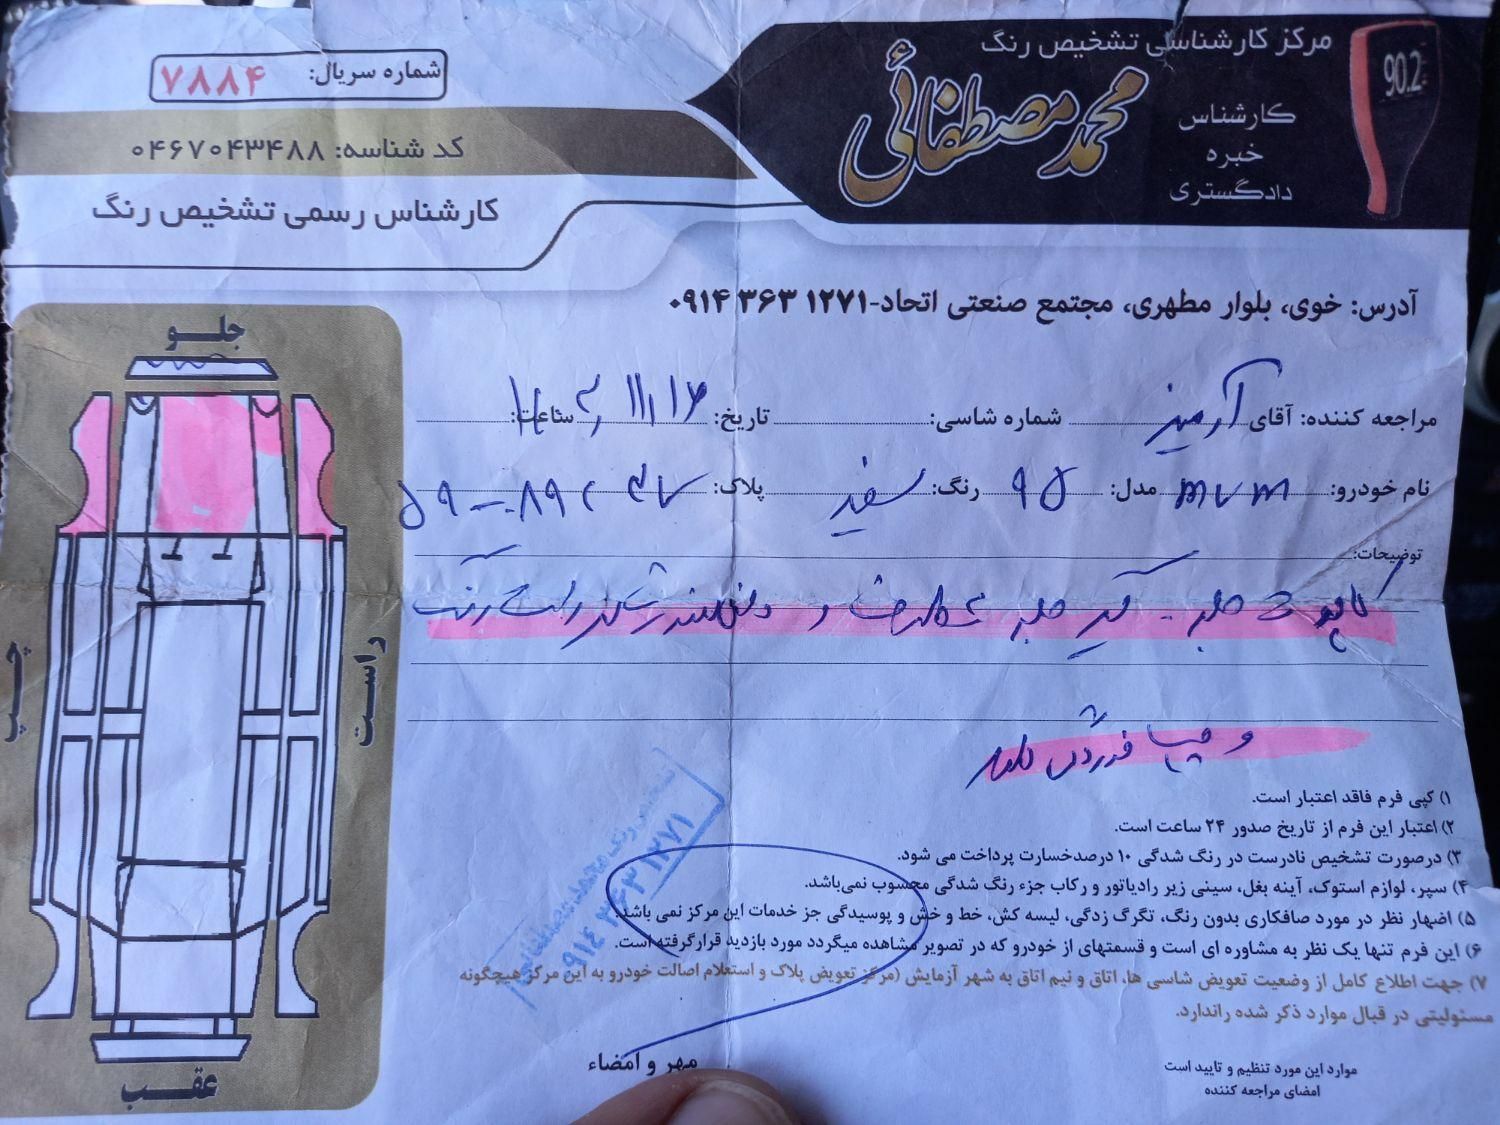 مرکز کارشناسی تشخیص رنگ
محمد مصطفائی
کارشناس
خبره
دادگستری
90.2
شماره سریال: ۷۸۸۴
کد شناسه: ۰۴۶۷۰۴۳۴۸۸
کارشناس رسمی تشخیص رنگ
آدرس: خوی، بلوار مطهری، مجتمع صنعتی اتحاد-۱۲۷۱ ۳۶۳ ۰۹۱۴
مراجعه کننده: آقای آرمین شماره شاسی: تاریخ: ساعت:
نام خودرو: mvm مدل: ۹۵ رنگ: سفید پلاک:
توضیحات:
کاپوت
و
۱) کپی فرم فاقد اعتبار است.
۲) اعتبار این فرم از تاریخ صدور ۲۴ ساعت است.
۳) درصورت تشخیص نادرست در رنگ شدگی ۱۰ درصدخسارت پرداخت می شود.
۴) سپر، لوازم استوک، آینه بغل، سینی زیر رادیاتور و رکاب جزء رنگ شدگی محسوب نمی‌باشد.
۵) اضهار نظر در مورد صافکاری بدون رنگ، تگرگ زدگی، لیسه کش، خط و خش و پوسیدگی جز خدمات این مرکز نمی باشد.
۶) این فرم تنها یک نظر به مشاوره ای است و قسمتهای از خودرو که در تصویر مشاهده میگردد مورد بازدید قرارگرفته است.
۷) جهت اطلاع کامل از وضعیت تعویض شاسی ها، اتاق و نیم اتاق به شهر آزمایش (مرکز تعویض پلاک و استعلام اصالت خودرو به این مرکز هیچگونه
مسئولیتی در قبال موارد ذکر شده راندارد.
مهر و امضاء
موارد این مورد تنظیم و تایید است
امضای مراجعه کننده
جلو
چپ
راست
عقب